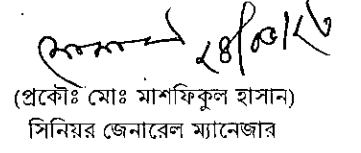 ২৪/০৫/২৩
(প্রকৌঃ মোঃ মাশফিকুল হাসান)
সিনিয়র জেনারেল ম্যানেজার